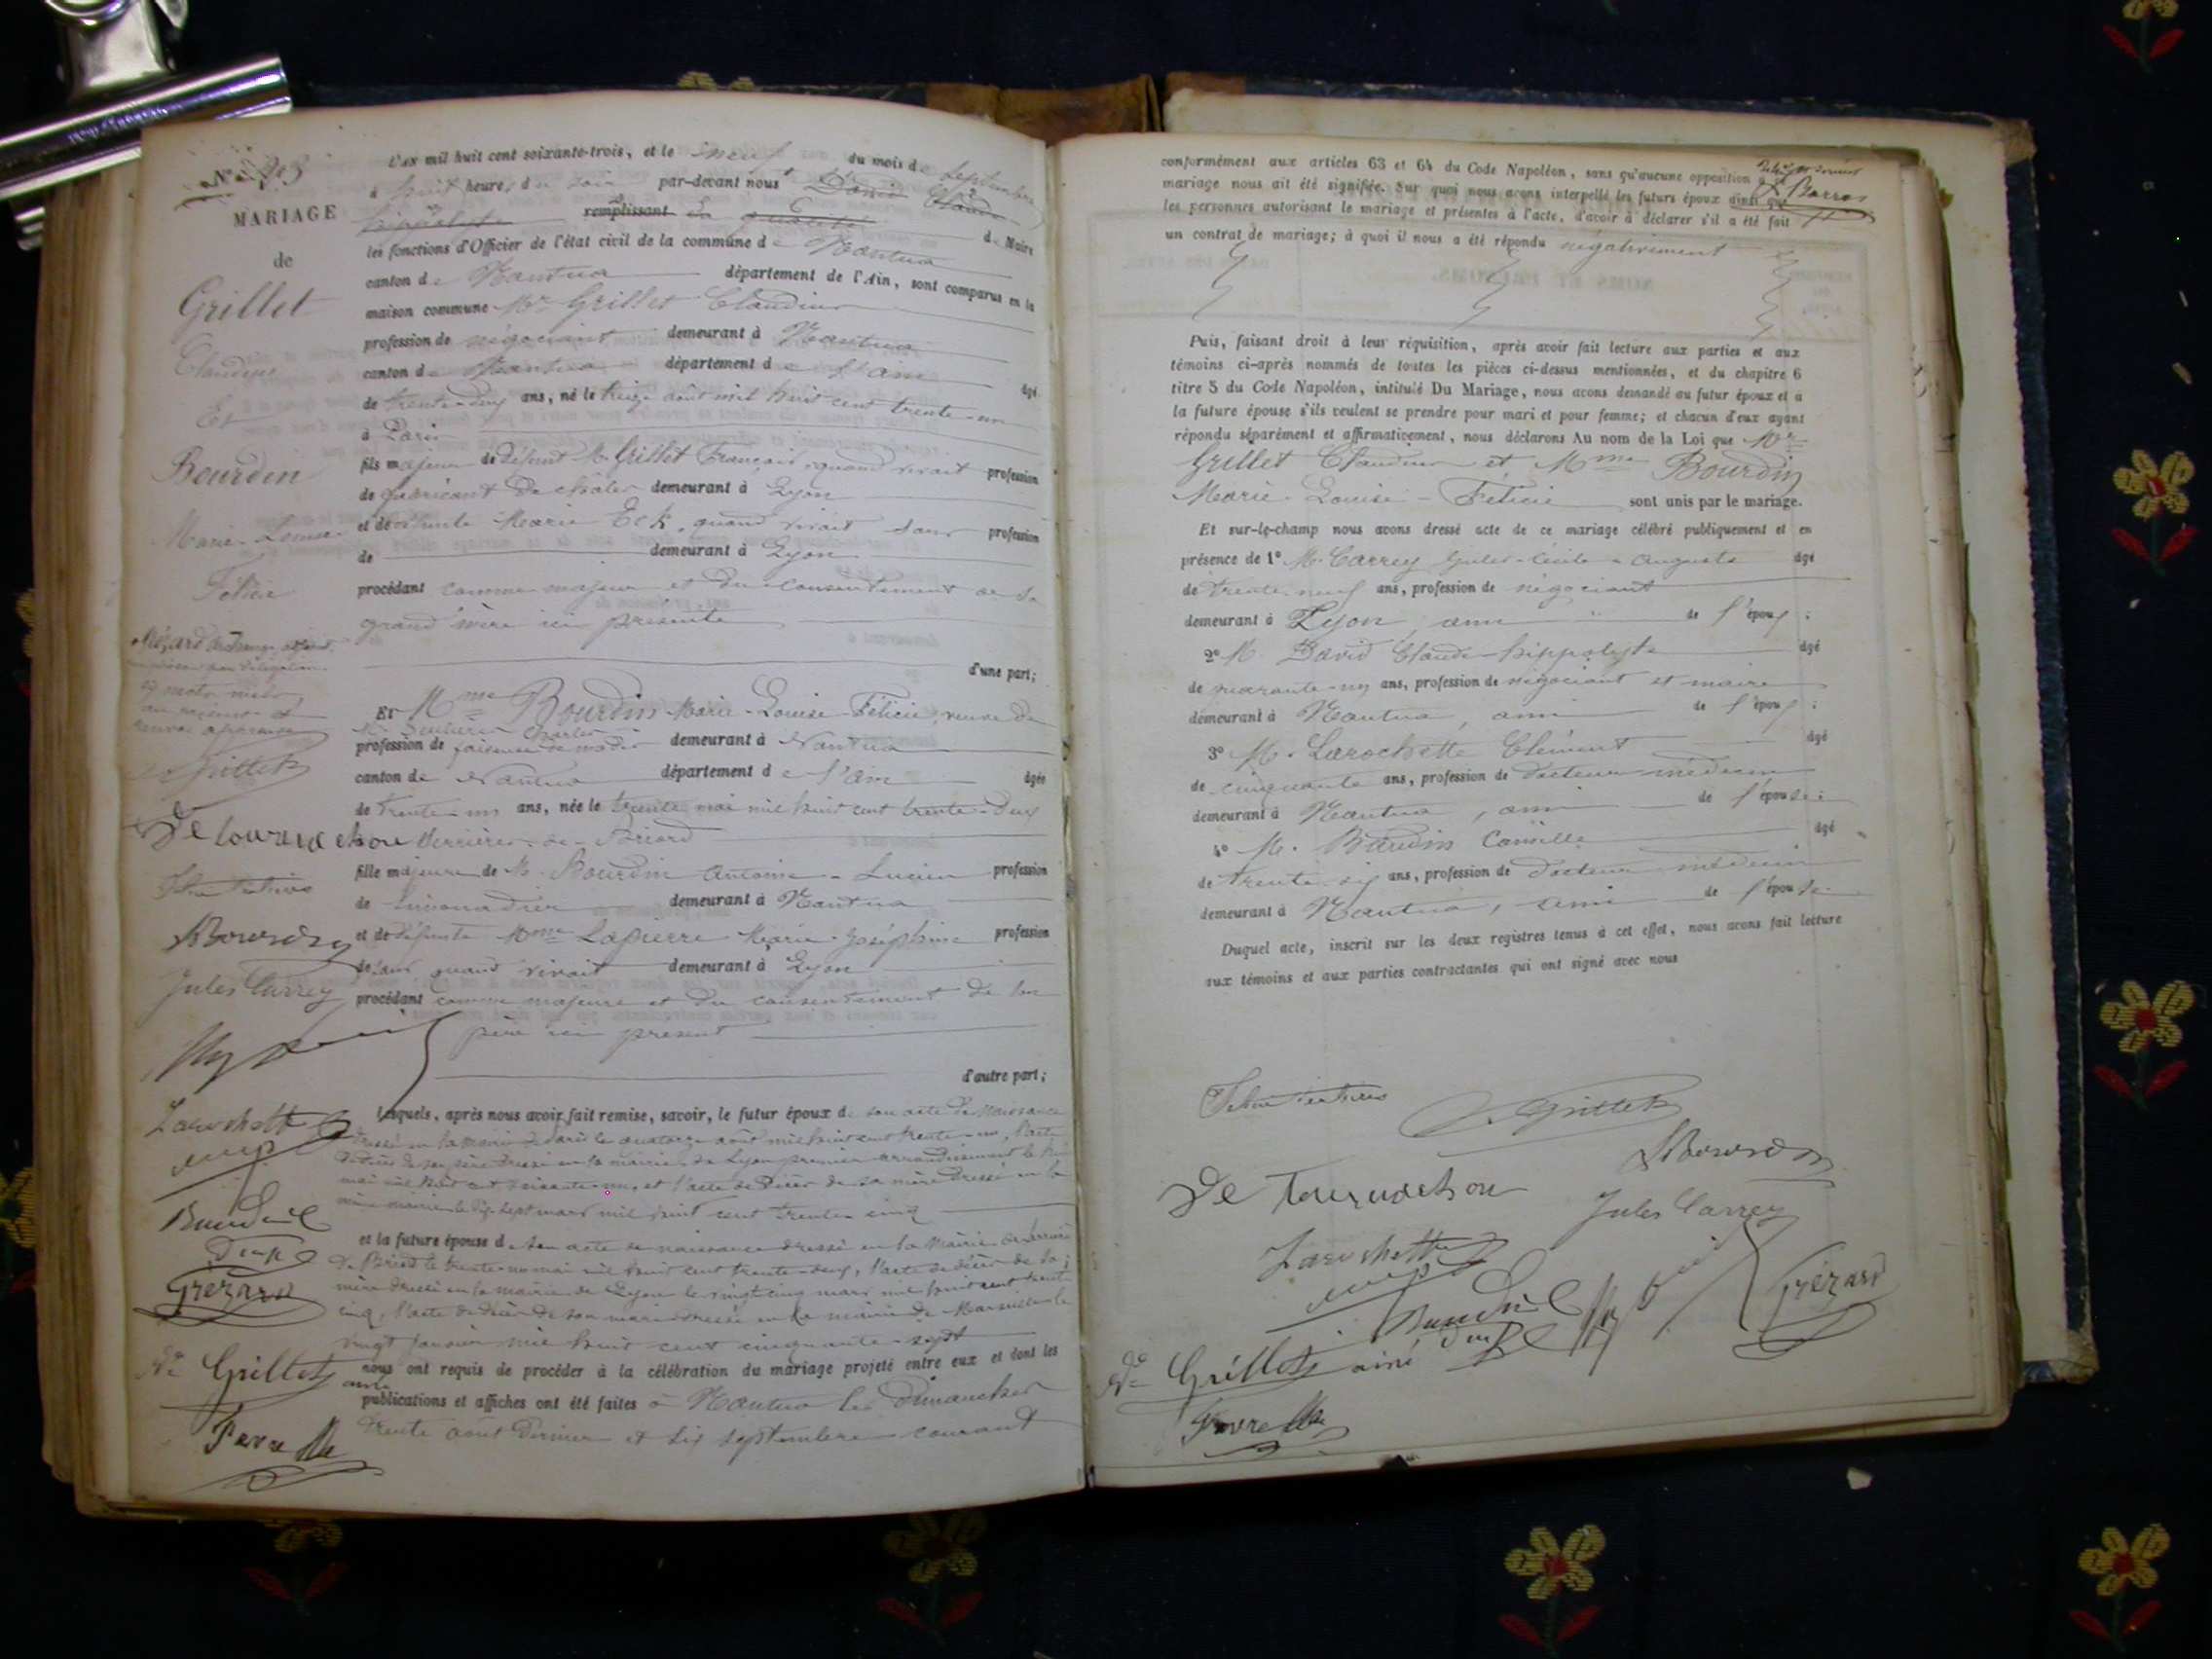 MARIAGE
de
Grillet
Claudius
Et
Bourdin
Marie-Louise
Félicie
L'an mil huit cent soixante-trois, et le neuf du mois de septembre
à huit heures du soir par-devant nous David Claude
hippolyte remplissant en qualité de Maire
les fonctions d'Officier de l'état civil de la commune de Nantua
canton de Nantua département de l'Ain, sont comparus en la
maison commune Mr Grillet Claudius
profession de négociant demeurant à Nantua
canton de Nantua département de l'ain âgé
de trente-deux ans, né le treize août mil huit cent trente-un
à Paris
fils majeur de défunt M. Grillet François, quand vivait profession
de fabricant de chales demeurant à Lyon
et de défunte Marie Eck, quand vivait sans profession
de demeurant à Lyon
procédant comme majeur et du consentement de sa
grand'mère ici présente
d'une part;
Et Mme Bourdin Marie-Louise-Félicie, veuve de
M. Charles
profession de faiseuse de modes demeurant à Nantua
canton de Nantua département de l'ain âgée
de trente-un ans, née le trente mai mil huit cent trente-deux
à Verrières-de-Briord
fille majeure de M. Bourdin Antoine-Lucien profession
de limonadier demeurant à Nantua
et de défunte Mme Lapierre Marie-Joséphine profession
de sans quand vivait demeurant à Lyon
procédant comme majeure et du consentement de son
père ici présent
d'autre part;
Lesquels, après nous avoir fait remise, savoir, le futur époux de son acte de naissance
dressé en la mairie de Paris le quatorze août mil huit cent trente-un, l'acte
de décès de son père dressé en la mairie de Lyon premier arrondissement le
mai mil huit cent soixante-un, et l'acte de décès de sa mère dressé en la
même mairie le dix-sept mars mil huit cent trente-cinq
et la future épouse de son acte de naissance dressé en la mairie de Verrières
de Briord le trente-un mai mil huit cent trente-deux, l'acte de décès de sa
mère dressé en la mairie de Lyon le vingt-cinq mars mil huit cent trente
cinq, l'acte de décès de son mari dressé en la mairie de Marseille le
vingt janvier mil huit cent cinquante-sept
nous ont requis de procéder à la célébration du mariage projeté entre eux et dont les
publications et affiches ont été faites à Nantua les dimanches
trente août dernier et six septembre courant
Grillet
De Tournachon
Bourdin
Jules Carrey
Larochette
Baudin
Grézard
Grillet
conformément aux articles 63 et 64 du Code Napoléon, sans qu'aucune opposition à ce
mariage nous ait été signifiée. Sur quoi nous avons interpellé les futurs époux ainsi que
les personnes autorisant le mariage et présentes à l'acte, d'avoir à déclarer s'il a été fait
un contrat de mariage; à quoi il nous a été répondu négativement
Puis, faisant droit à leur réquisition, après avoir fait lecture aux parties et aux
témoins ci-après nommés de toutes les pièces ci-dessus mentionnées, et du chapitre 6
titre 5 du Code Napoléon, intitulé Du Mariage, nous avons demandé au futur époux et à
la future épouse s'ils veulent se prendre pour mari et pour femme; et chacun d'eux ayant
répondu séparément et affirmativement, nous déclarons Au nom de la Loi que Mr
Grillet Claudius et Mme Bourdin
Marie-Louise-Félicie sont unis par le mariage.
Et sur-le-champ nous avons dressé acte de ce mariage célébré publiquement et en
présence de 1° M. Carrey Jules-Cécile-Auguste âgé
de trente-neuf ans, profession de négociant
demeurant à Lyon, ami de l'époux;
2° M. David Claude-hippolyte âgé
de quarante-un ans, profession de négociant et maire
demeurant à Nantua, ami de l'époux;
3° M. Larochette Clément âgé
de cinquante ans, profession de docteur-médecin
demeurant à Nantua, ami de l'épouse;
4° M. Baudin Camille âgé
de trente-six ans, profession de docteur-médecin
demeurant à Nantua, ami de l'épouse
Duquel acte, inscrit sur les deux registres tenus à cet effet, nous avons fait lecture
aux témoins et aux parties contractantes qui ont signé avec nous
Grillet
Bourdin
De Tournachon
Jules Carrey
Larochette
Baudin
Grézard
Grillet ainé